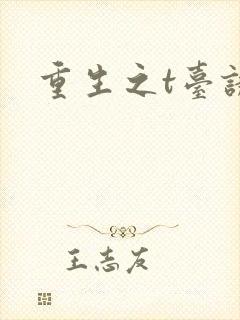 重生之t臺
王志友